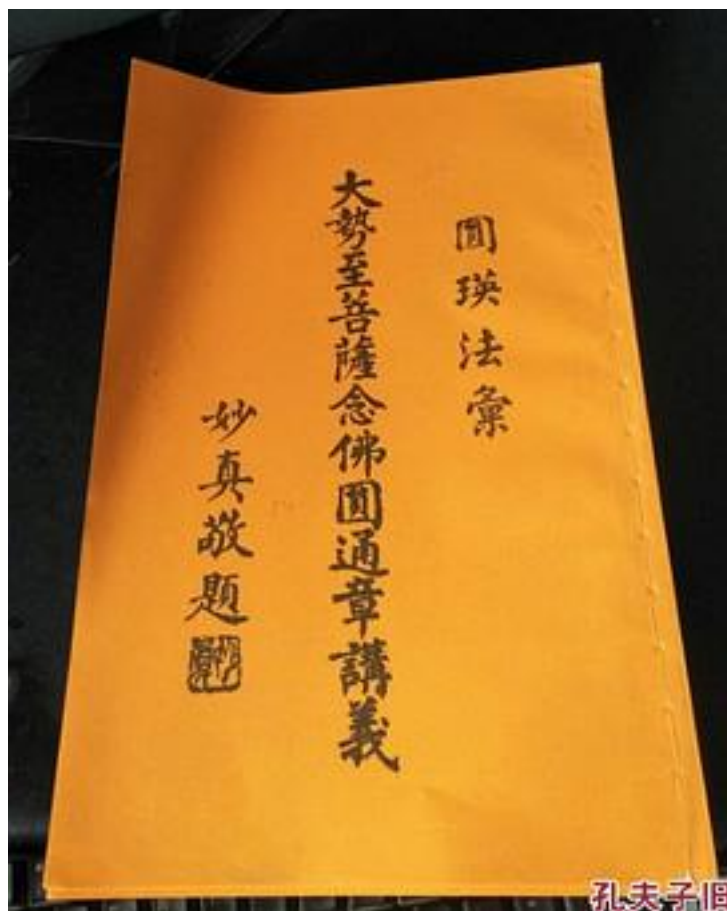 圓瑛法彙
大勢至菩薩念佛圓通章講義
妙真敬題
孔夫子旧